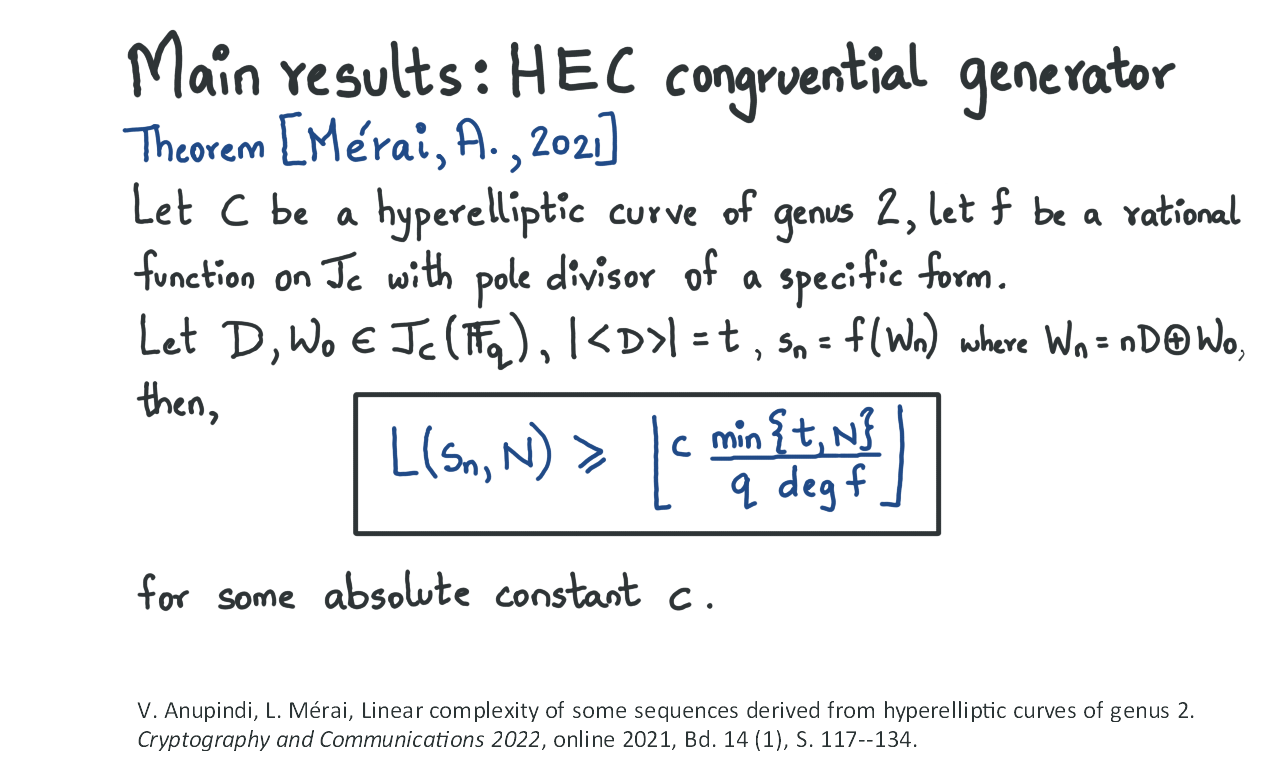 Main results: HEC congruential generator
Theorem [Mérai, A., 2021]
Let C be a hyperelliptic curve of genus 2, let f be a rational
function on J_C with pole divisor of a specific form.
Let D, W₀ ∈ J_C(𝔽_q), |<D>| = t, s_n = f(W_n) where W_n = nD⊕W₀,
then,
L(s_n, N) ⩾ ⌊c min{t, N} / q deg f⌋
for some absolute constant c.
V. Anupindi, L. Mérai, Linear complexity of some sequences derived from hyperelliptic curves of genus 2.
Cryptography and Communications 2022, online 2021, Bd. 14 (1), S. 117--134.